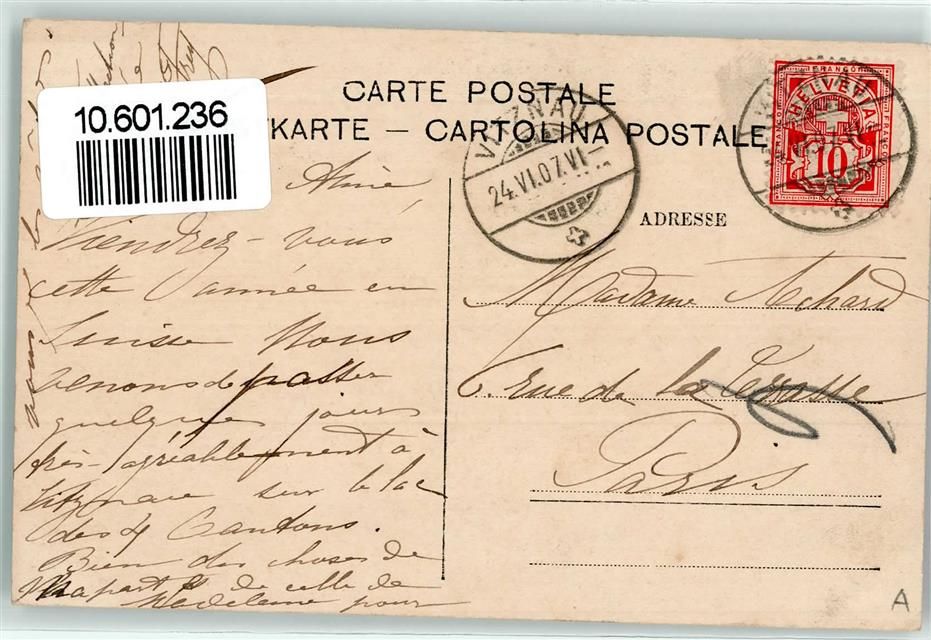 10.601.236
CARTE POSTALE
KARTE – CARTOLINA POSTALE
VITZNAU
24.VI.07.VI
FRANCO
HELVETIA
10
ADRESSE
Madame Achard
6 rue de la Terasse
Paris
Aline
Viendrez-vous
cette année en
Suisse Nous
venons de passer
quelques jours
très-agréablement à
Vitznau sur le lac
des 4 Cantons.
Bien des choses de
ma part & de celle de
Madeleine pour
A